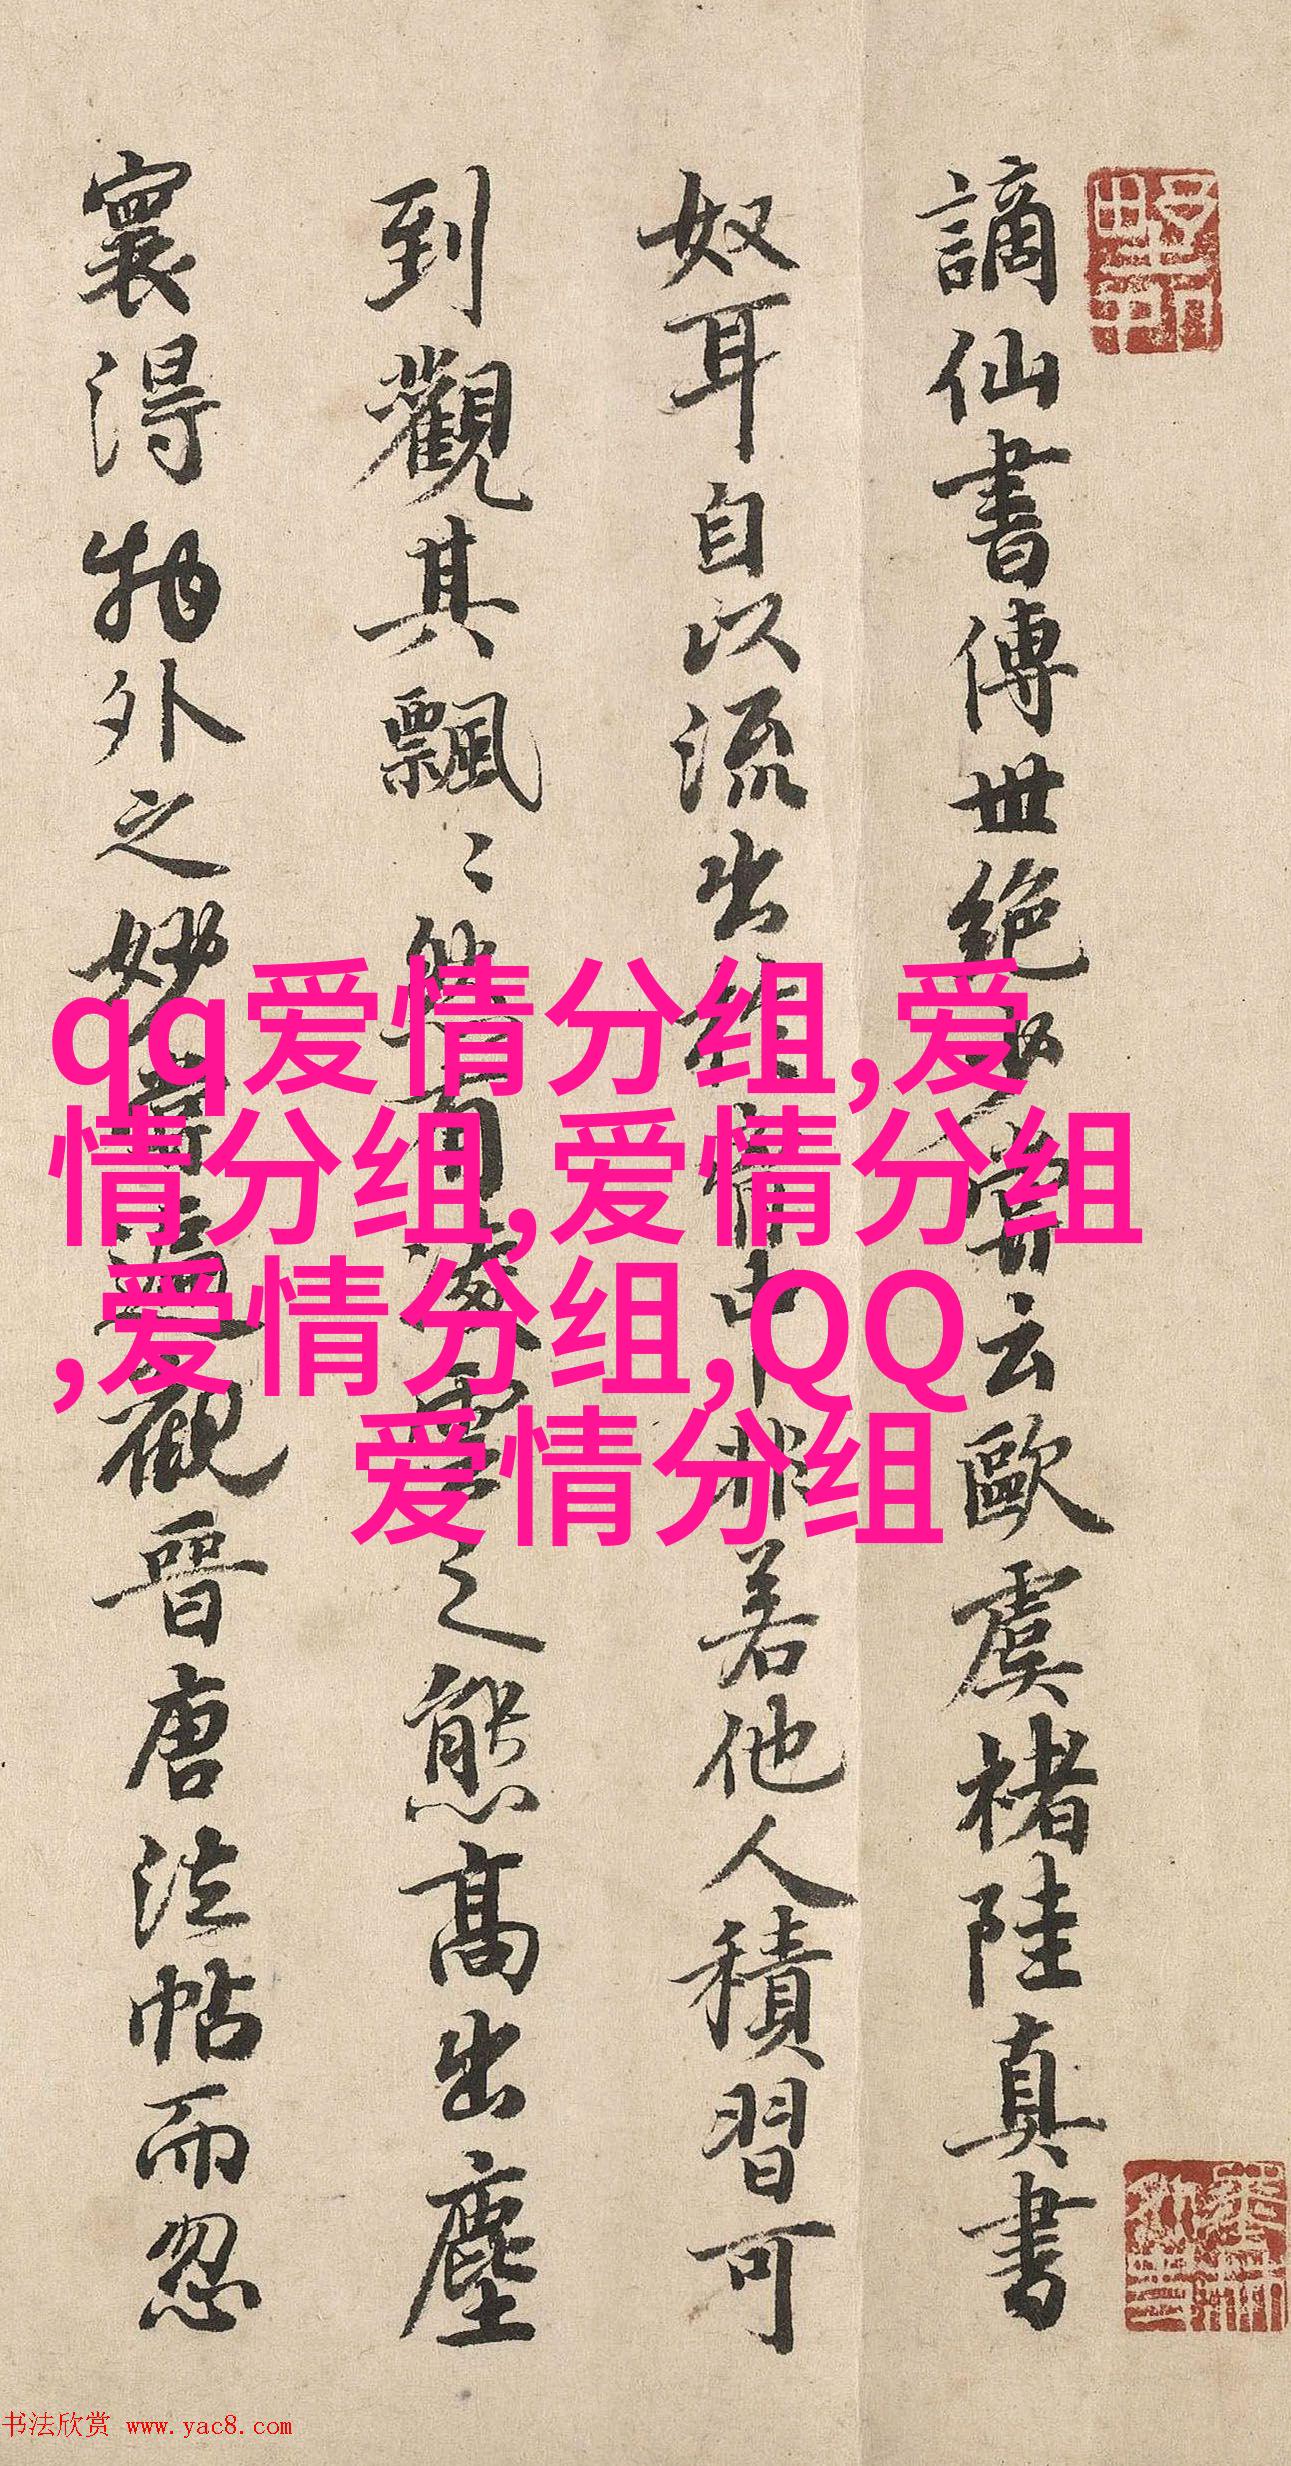 謫仙書傳世絕少嘗云歐虞褚陸真書
奴耳自以流出於胷中非若他人積習可
到觀其飄〻然有凌雲之態高出塵
寰得物外之妙嘗遍觀晉唐法帖而忽
qq爱情分组,爱
情分组,爱情分组
,爱情分组,QQ
爱情分组
书法欣赏 www.yac8.com